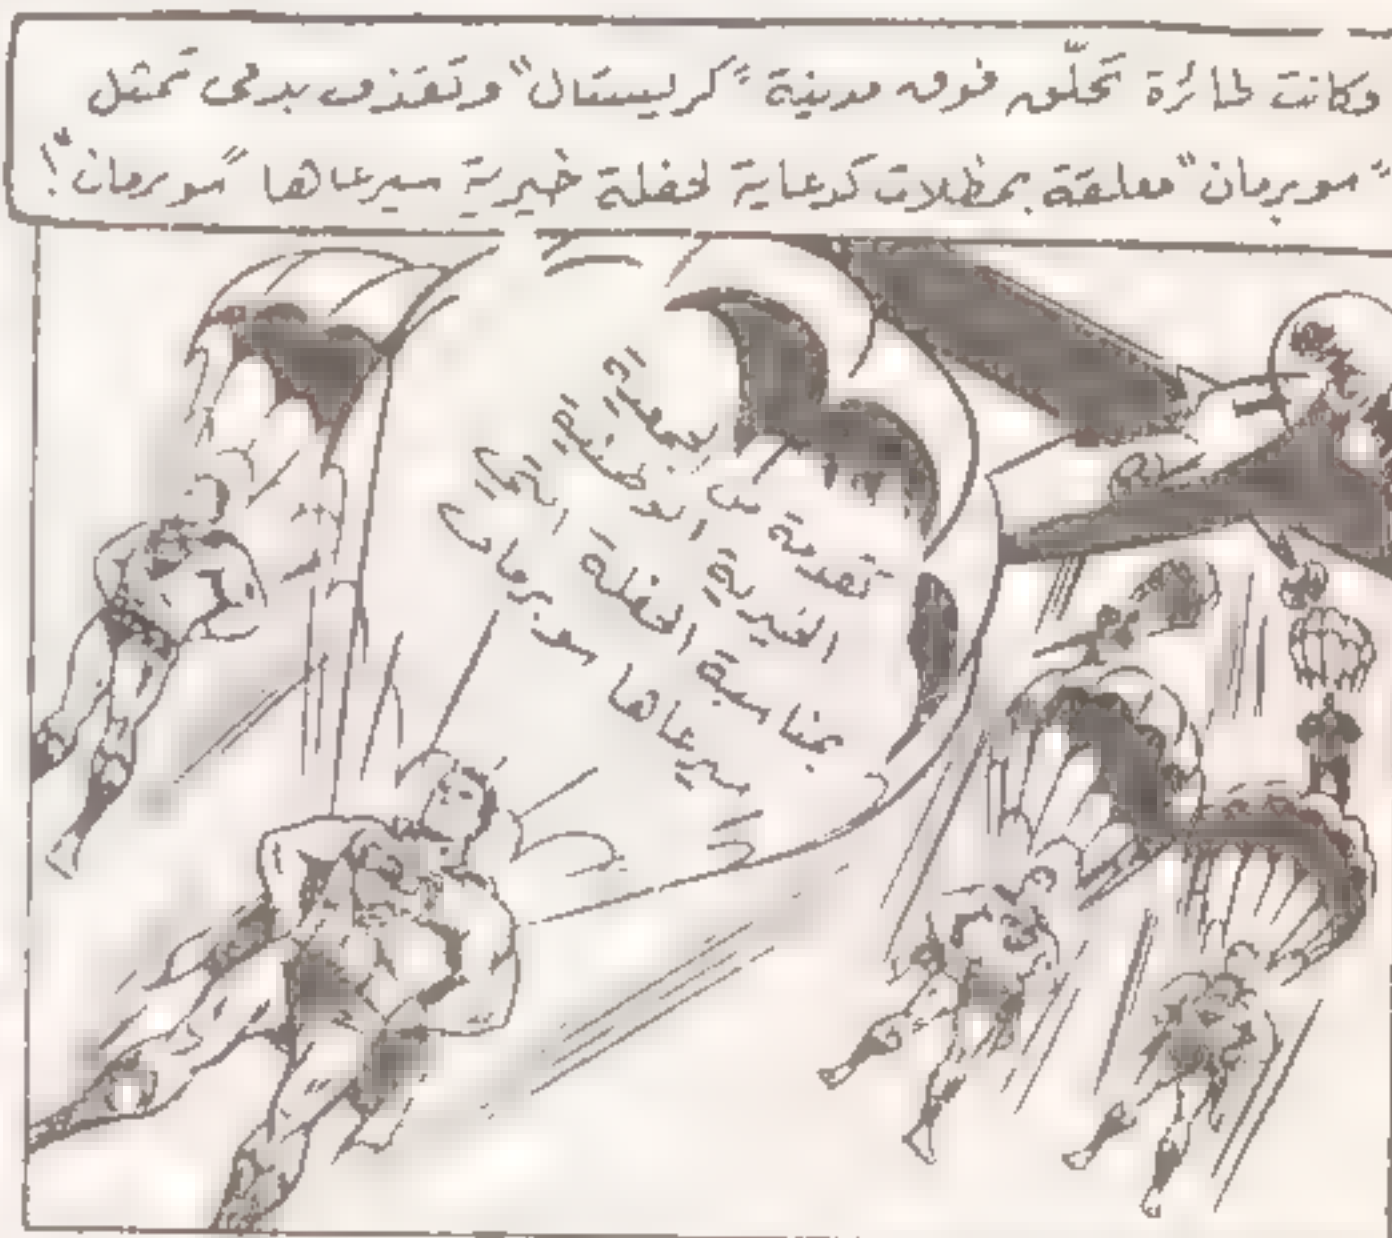 وكانت طائرة تحلّق فوق مدينة "كريستال" وتقذف بدمى تمثل
"سوبرمان" معلقة بمظلات كدعاية لحفلة خيرية سيرعاها "سوبرمان"!
تقدمة من الجمعية
الخيرية الوطنية
بمناسبة الحفلة التي
سيرعاها سوبرمان